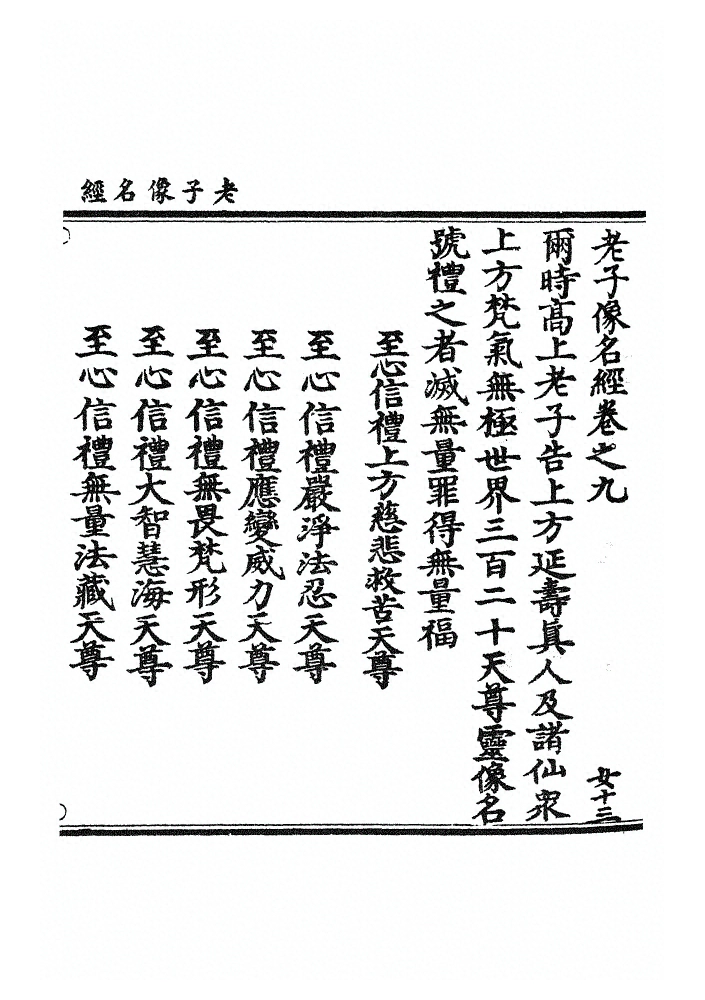 老子像名經
老子像名經卷之九
女十三
爾時高上老子告上方延壽眞人及諸仙衆
上方梵氣無極世界三百二十天尊靈像名
號禮之者滅無量罪得無量福
至心信禮上方慈悲救苦天尊
至心信禮嚴淨法忍天尊
至心信禮應變威力天尊
至心信禮無畏梵形天尊
至心信禮大智慧海天尊
至心信禮無量法藏天尊